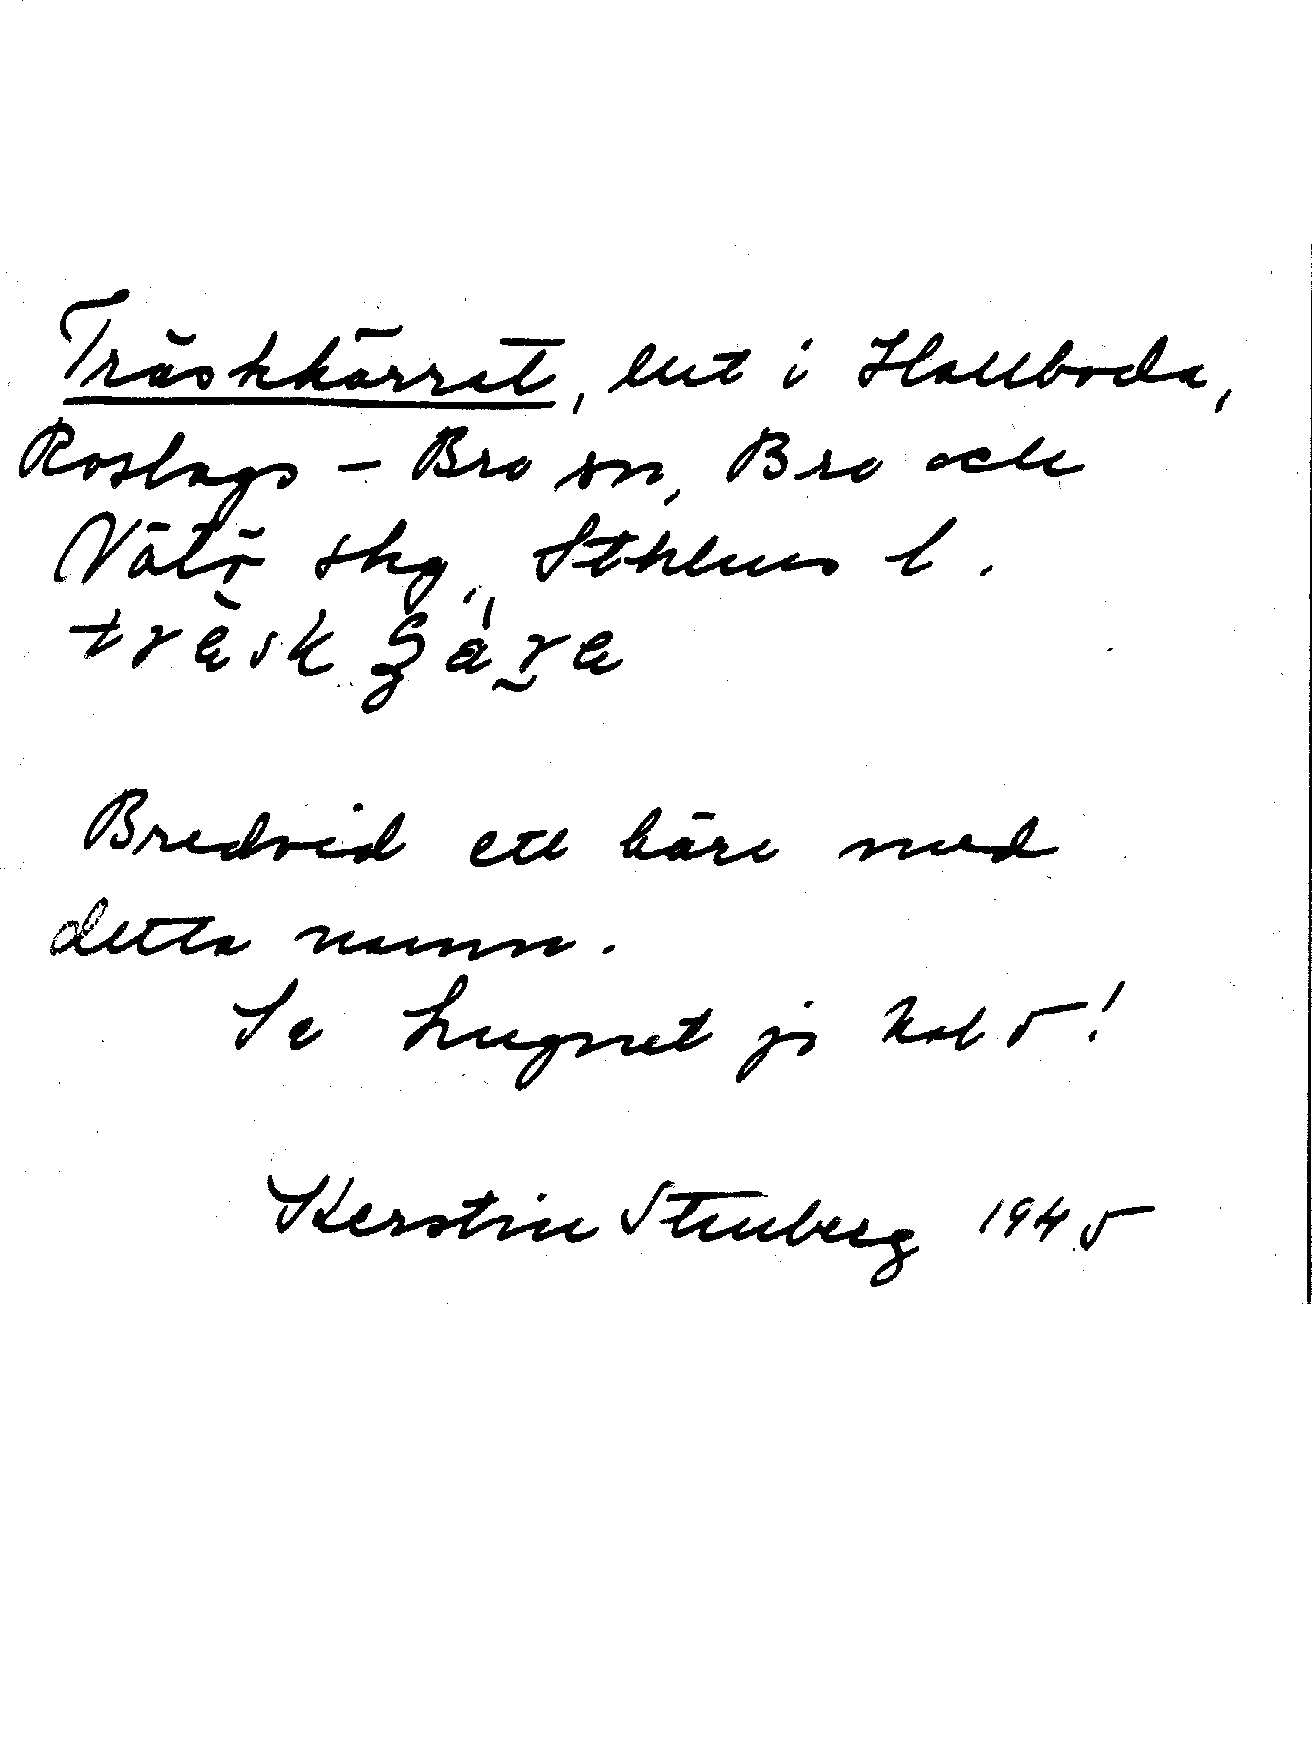 Träskkärret, lut i Hallboda,
Roslags-Bro sn, Bro och
Vätö skg, Sthlms l.
Bredvid ett kärr med
detta namn.
Se Lugnet på kal 5!
Kerstin Stenberg 1945